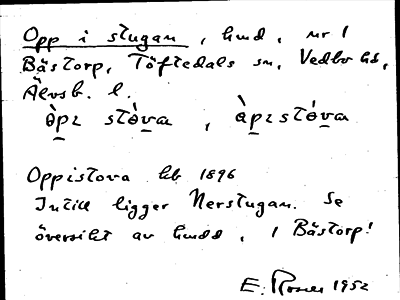 Opp i stugan, hmd, nr 1
Bästorp, Töftedals sn, Vedbo hd,
Älvsb. l.
òpɩ stóva, àpɩstóva
Oppistova hb 1896
Intill ligger Nerstugan. Se
översikt av hmdd, i Bästorp!
E. Rosen 1952